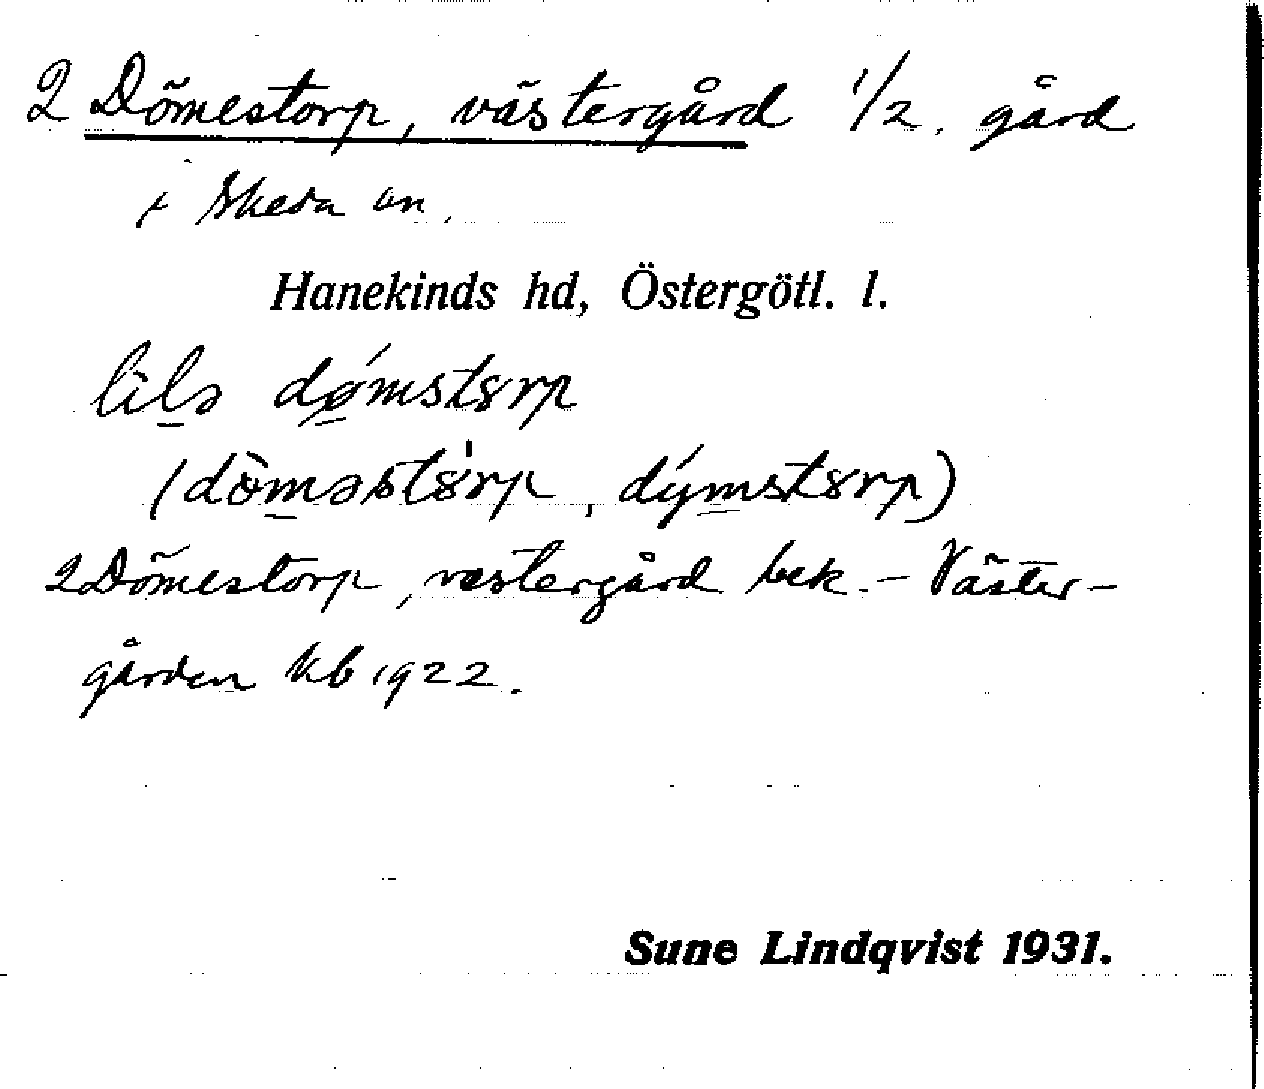 2 Dömestorp, västergård 1/2. gård
i Skeda sn.
Hanekinds hd, Östergötl. l.
lìlə dǿmstȣrp
(dòməstȣ'rp, dýmstȣrp)
2 Dömestorp, vestergård bek. – Väster-
gården kb 1922.
Sune Lindqvist 1931.